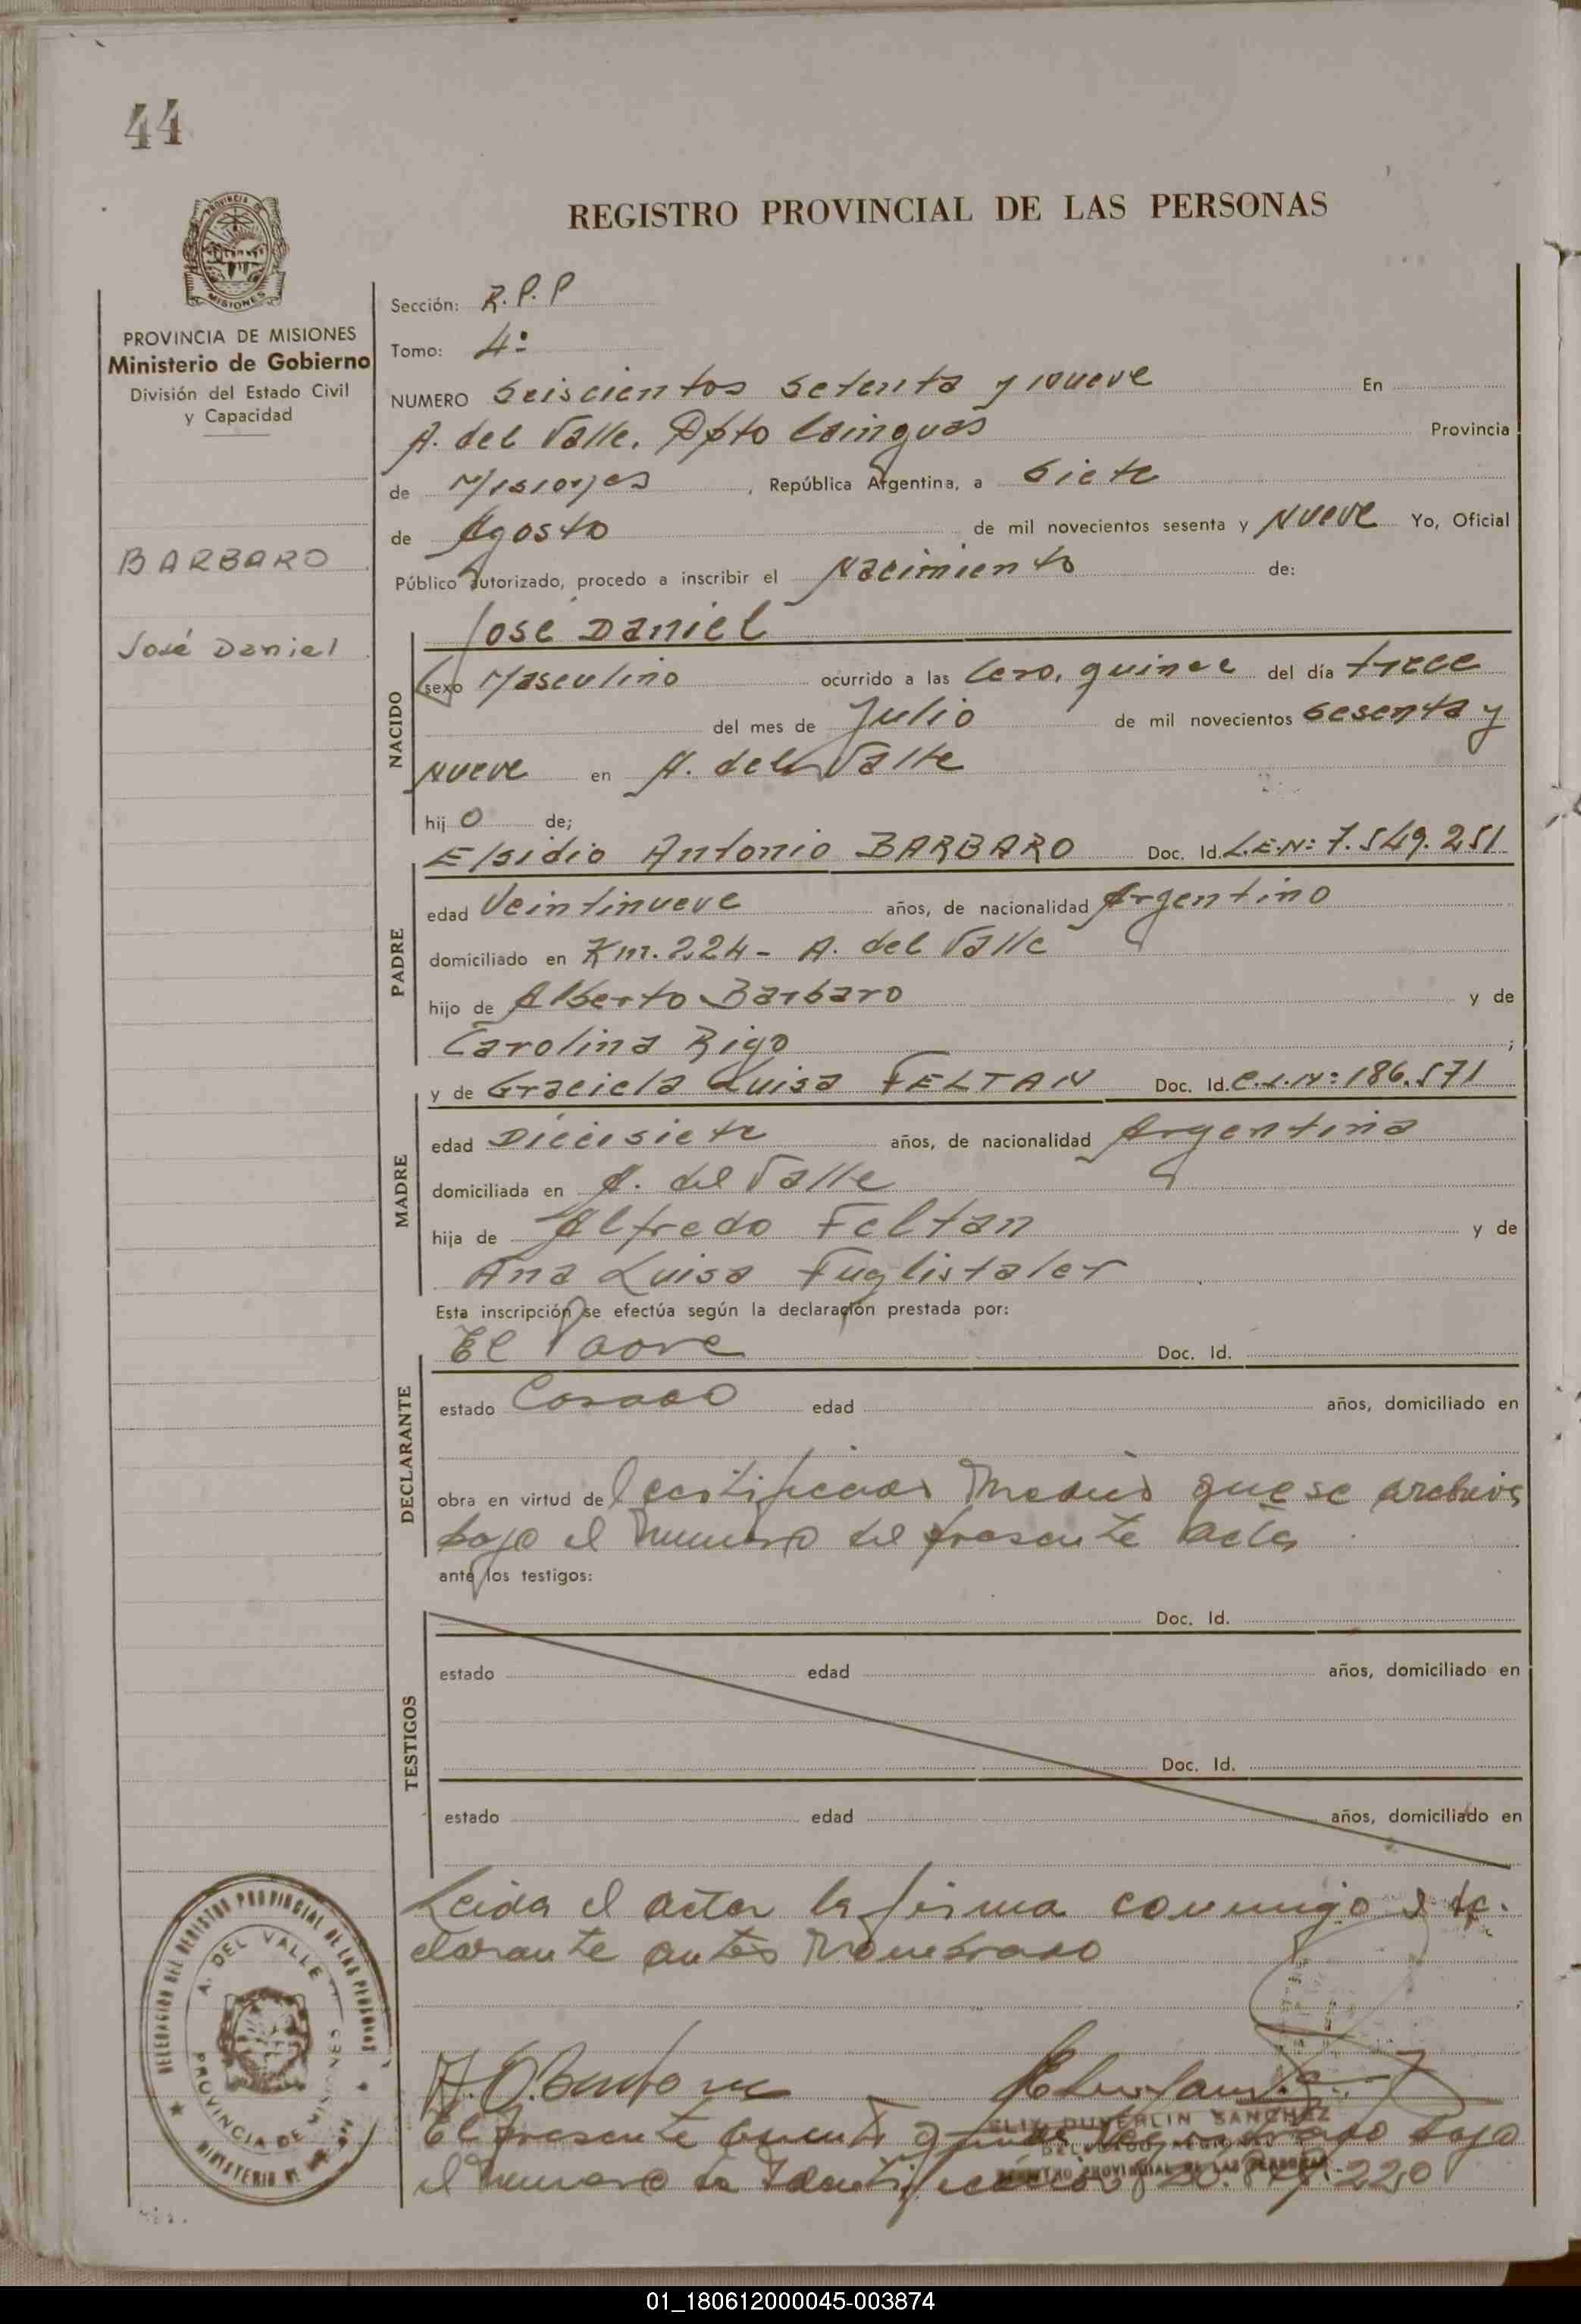 44
REGISTRO PROVINCIAL DE LAS PERSONAS
PROVINCIA DE
MISIONES
PROVINCIA DE MISIONES
Ministerio de Gobierno
División del Estado Civil
y Capacidad
BARBARO
José Daniel
Sección: R.P.P
Tomo: 4º
NUMERO Seiscientos Setenta y nueve En
A. del Valle. Dpto Cainguas Provincia
de Misiones, República Argentina, a Siete
de Agosto de mil novecientos sesenta y Nueve Yo, Oficial
Público autorizado, procedo a inscribir el Nacimiento de:
José Daniel
NACIDO
sexo Masculino ocurrido a las Cero, quince del día trece
del mes de Julio de mil novecientos Sesenta y
Nueve en A. del Valle
hij o de;
Elsidio Antonio BARBARO Doc. Id. L.E.Nº: 7.549.251
PADRE
edad Veintinueve años, de nacionalidad Argentino
domiciliado en Km. 224 - A. del Valle
hijo de Alberto Barbaro y de
Carolina Rigo ;
y de Graciela Luisa FELTAN Doc. Id. C.I.Nº: 186.571
MADRE
edad Diecisiete años, de nacionalidad Argentina
domiciliada en A. del Valle
hija de Alfredo Feltan y de
Ana Luisa Fuglistaler
Esta inscripción se efectúa según la declaración prestada por:
El Padre Doc. Id.
DECLARANTE
estado Casado edad años, domiciliado en
obra en virtud del certificado Medico que se archiva
bajo el Numero del presente acta
ante los testigos:
TESTIGOS
Doc. Id.
estado edad años, domiciliado en
Doc. Id.
estado edad años, domiciliado en
Leida el acta la firma conmigo el de.
clarante antes Nombrado
DELEGACION DEL REGISTRO PROVINCIAL DE LAS PERSONAS
A. DEL VALLE
PROVINCIA DE MISIONES
MINISTERIO DE
ELIX DUVERLIN SANCHEZ
REGISTRO PROVINCIAL DE LAS PERSONAS
El presente bajo
el Numero de Identificación
01_180612000045-003874